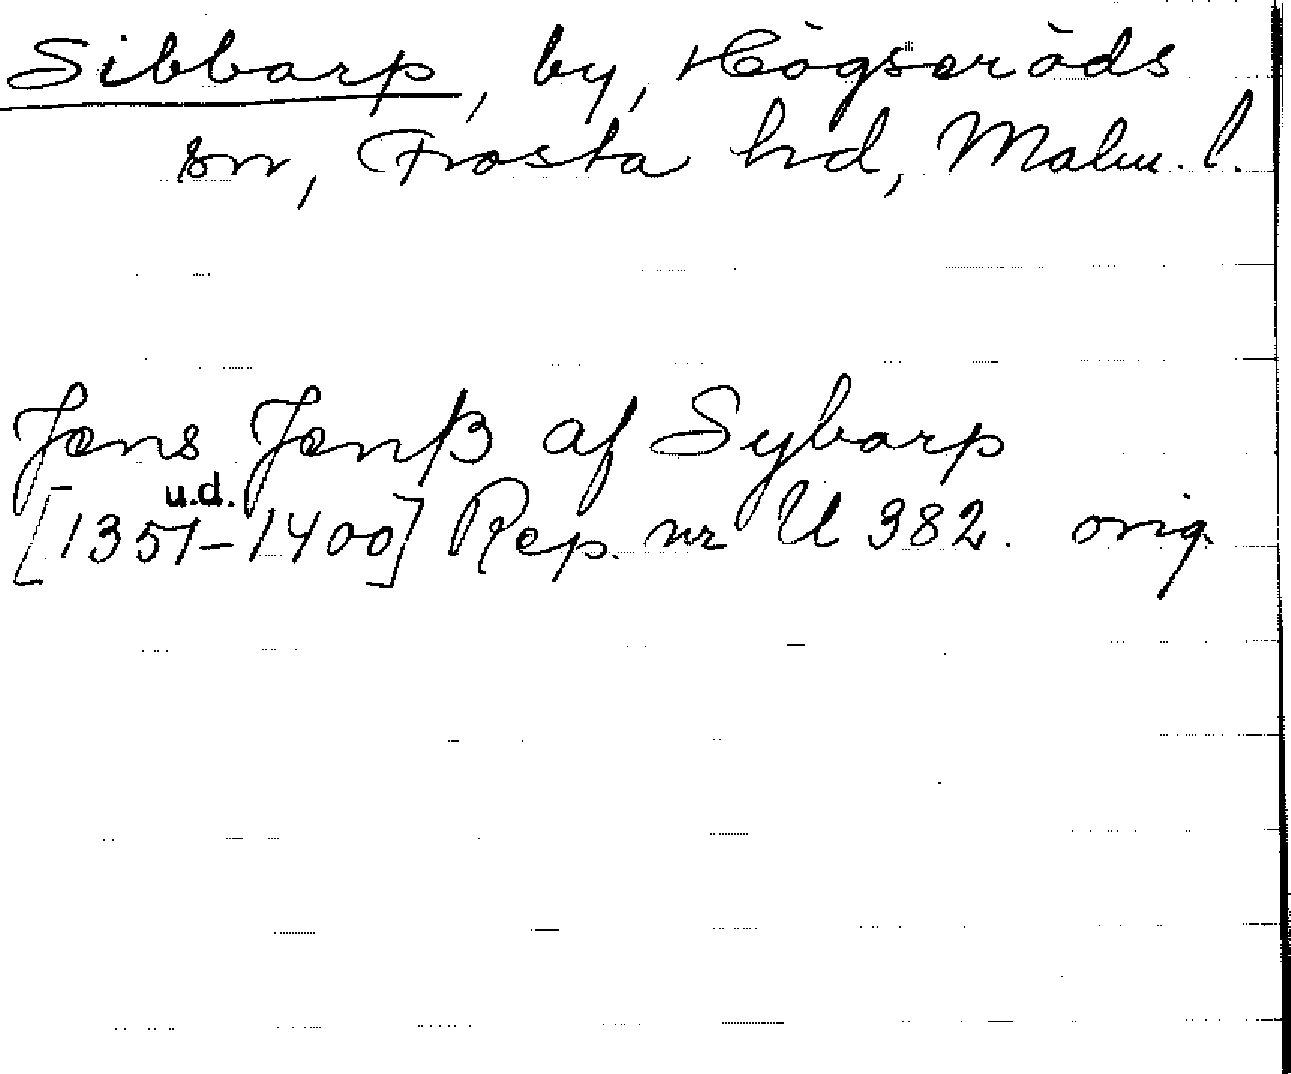 Sibbarp, by, Högseröds
sn, Frosta hd, Malm. l.
Jens Jenß af Sybarp
u.d.
[1351-1400] Rep. nr U 382. orig.